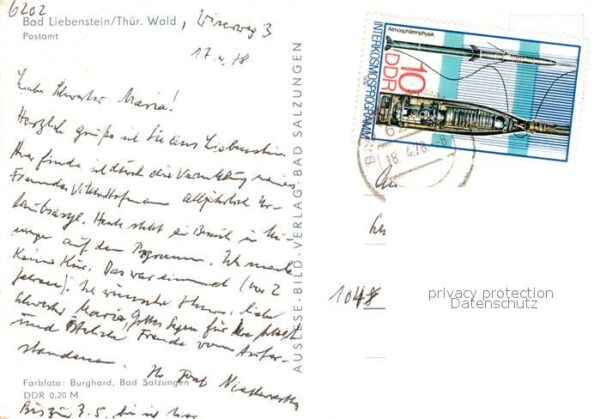 6202
Bad Liebenstein/Thür. Wald, Wieseweg 3
Postamt
17.4.78
Liebe Schwester Maria!
Herzlich grüße ich Sie aus Liebenstein.
Hier finde ich durch die Vermittlung meines
Freundes Viktor Hofmann alljährlich Ur-
laubsasyl. Heute steht ein Besuch in
auf dem Programm. Ich mache
keine Kur. Das war einmal (vor 2
Jahren). Ich wünsche Ihnen, liebe
Schwester Maria, Gottes Segen für Ihre Arbeit
und österliche Freude vom Aufer-
standenen. Ihr Josef
Farbfoto: Burghard, Bad Salzungen
DDR 0,20 M
Bis zum 3.5. bin ich hier
AUSLESE-BILD-VERLAG-BAD SALZUNGEN
Atmosphärenphysik
INTERKOSMOSPROGRAMM
DDR
10
18.4.78
1048
privacy protection
Datenschutz